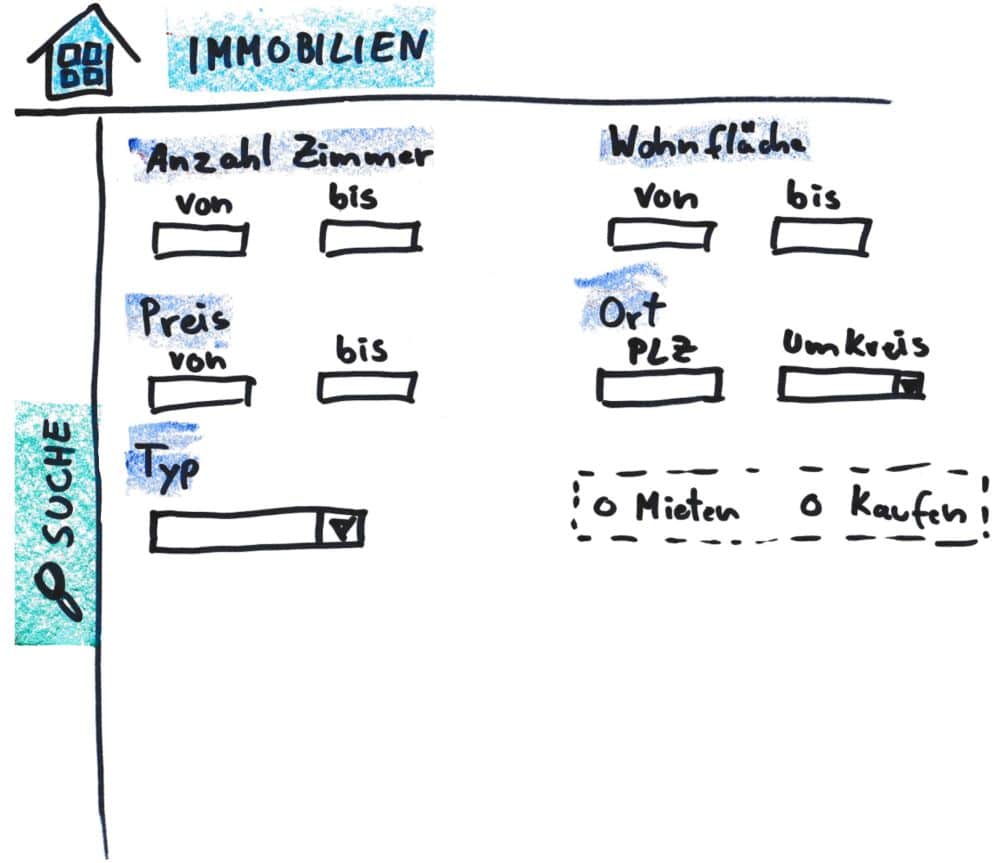 IMMOBILIEN
Anzahl Zimmer
von bis
Wohnfläche
von bis
Preis
von bis
Ort
PLZ Umkreis
Typ
Mieten Kaufen
SUCHE